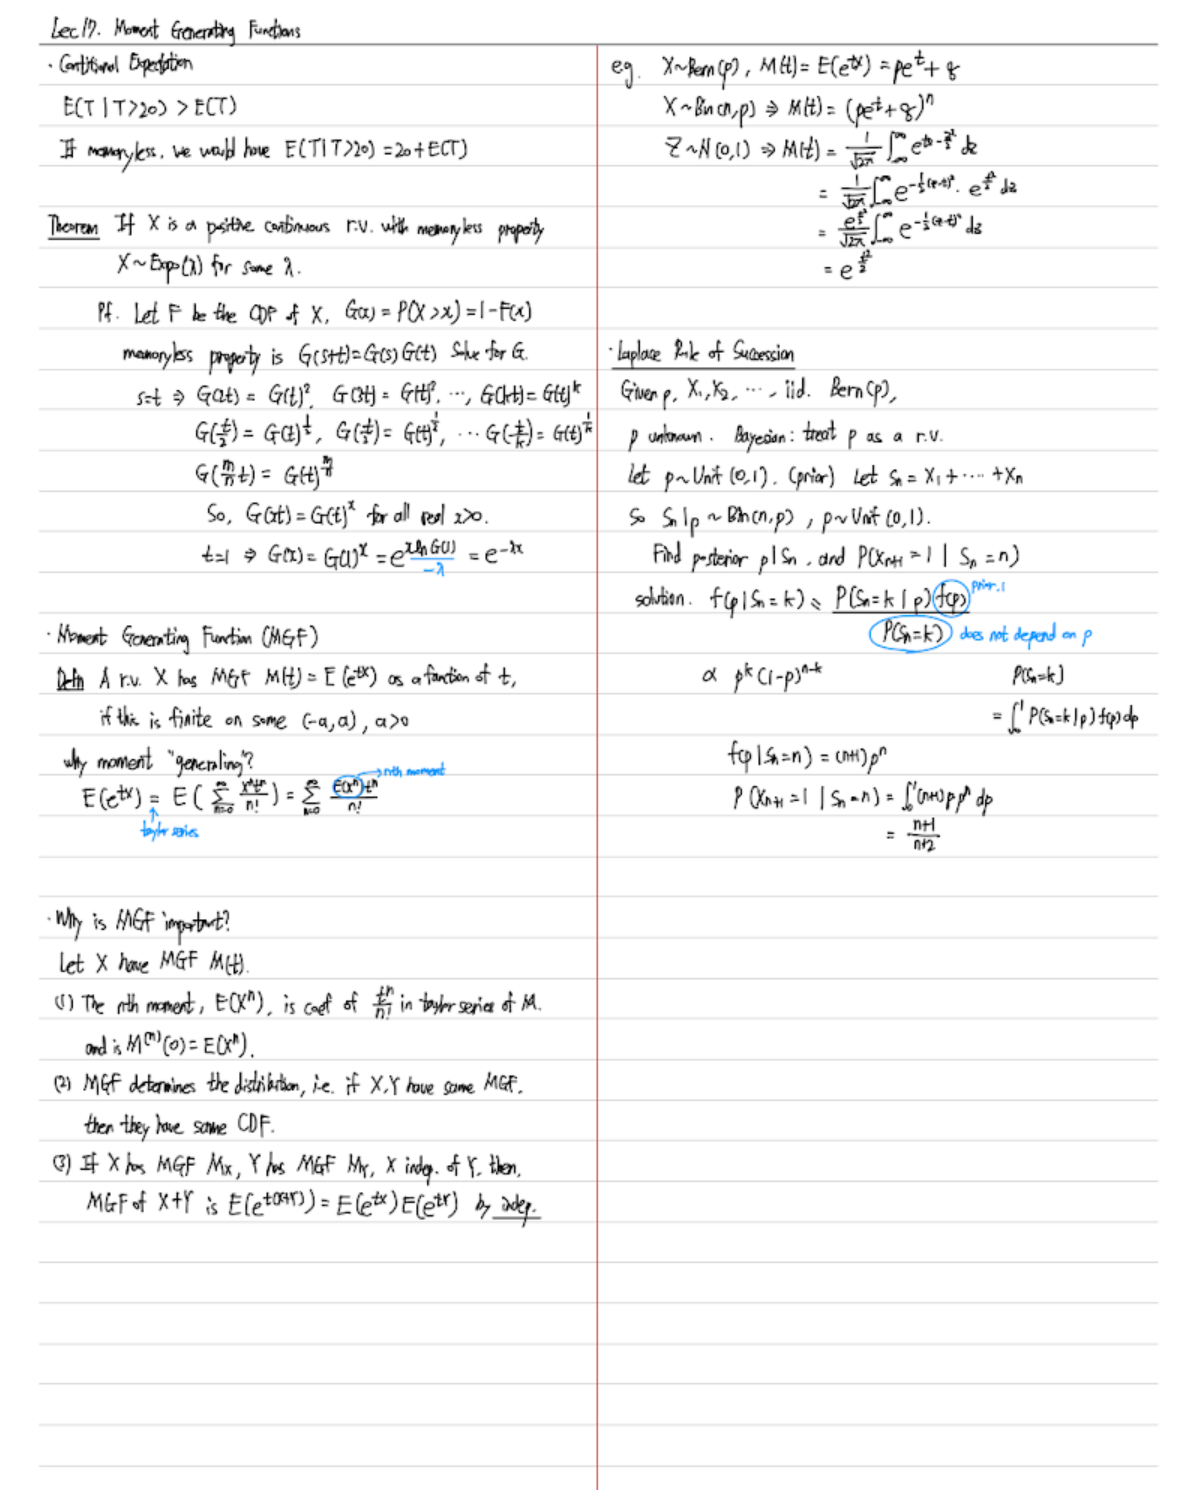 Lec 17. Moment Generating Functions
· Conditional Expectation
E(T | T>20) > E(T)
If memoryless, we would have E(T|T>20) = 20 + E(T)
Theorem If X is a positive continuous r.v. with memoryless property
X ~ Expo(λ) for some λ.
Pf. Let F be the CDF of X, G(x) = P(X > x) = 1 - F(x)
memoryless property is G(s+t) = G(s) G(t) Solve for G.
s=t ⇒ G(2t) = G(t)², G(3t) = G(t)³, ..., G(kt) = G(t)^k
G(t/2) = G(t)^{1/2}, G(t/3) = G(t)^{1/3}, ... G(t/k) = G(t)^{1/k}
G(m/n t) = G(t)^{m/n}
So, G(xt) = G(t)^x for all real x>0.
t=1 ⇒ G(x) = G(1)^x = e^{x ln G(1)} = e^{-λx}
-λ
· Moment Generating Function (MGF)
Defn A r.v. X has MGF M(t) = E(e^{tx}) as a function of t,
if this is finite on some (-a, a), a>0
why moment "generating"?
→ nth moment
E(e^{tx}) = E( ∑_{n=0}^{∞} x^n t^n / n! ) = ∑_{n=0}^{∞} E(x^n) t^n / n!
↑ taylor series
· Why is MGF important?
Let X have MGF M(t).
(1) The nth moment, E(X^n), is coef of t^n/n! in taylor series of M.
and is M^{(n)}(0) = E(X^n).
(2) MGF determines the distribution, i.e. if X,Y have same MGF,
then they have same CDF.
(3) If X has MGF Mx, Y has MGF My, X indep. of Y, then,
MGF of X+Y is E(e^{t(X+Y)}) = E(e^{tx}) E(e^{tY}) by indep.
eg. X~Bern(p), M(t) = E(e^{tx}) = pe^t + q
X ~ Bin(n,p) ⇒ M(t) = (pe^t + q)^n
Z ~ N(0,1) ⇒ M(t) = 1/√2π ∫_{-∞}^{∞} e^{tz - z²/2} dz
= 1/√2π ∫_{-∞}^{∞} e^{-½(z-t)²} · e^{t²/2} dz
= e^{t²/2}/√2π ∫_{-∞}^{∞} e^{-½(z-t)²} dz
= e^{t²/2}
· Laplace Rule of Succession
Given p, X₁, X₂, ..., iid. Bern(p),
p unknown. Bayesian: treat p as a r.v.
Let p ~ Unif (0,1). (prior) Let Sn = X₁ + ... + Xn
So Sn|p ~ Bin(n,p), p ~ Unif (0,1).
Find posterior p|Sn, and P(Xn+1 = 1 | Sn = n)
prior, 1
solution. f(p|Sn = k) = P(Sn = k | p) f(p)
P(Sn=k) does not depend on p
∝ p^k (1-p)^{n-k} P(Sn=k)
= ∫₀¹ P(Sn=k|p) f(p) dp
f(p|Sn=n) = (n+1) p^n
P(Xn+1 = 1 | Sn = n) = ∫₀¹ (n+1) p p^n dp
= n+1 / n+2